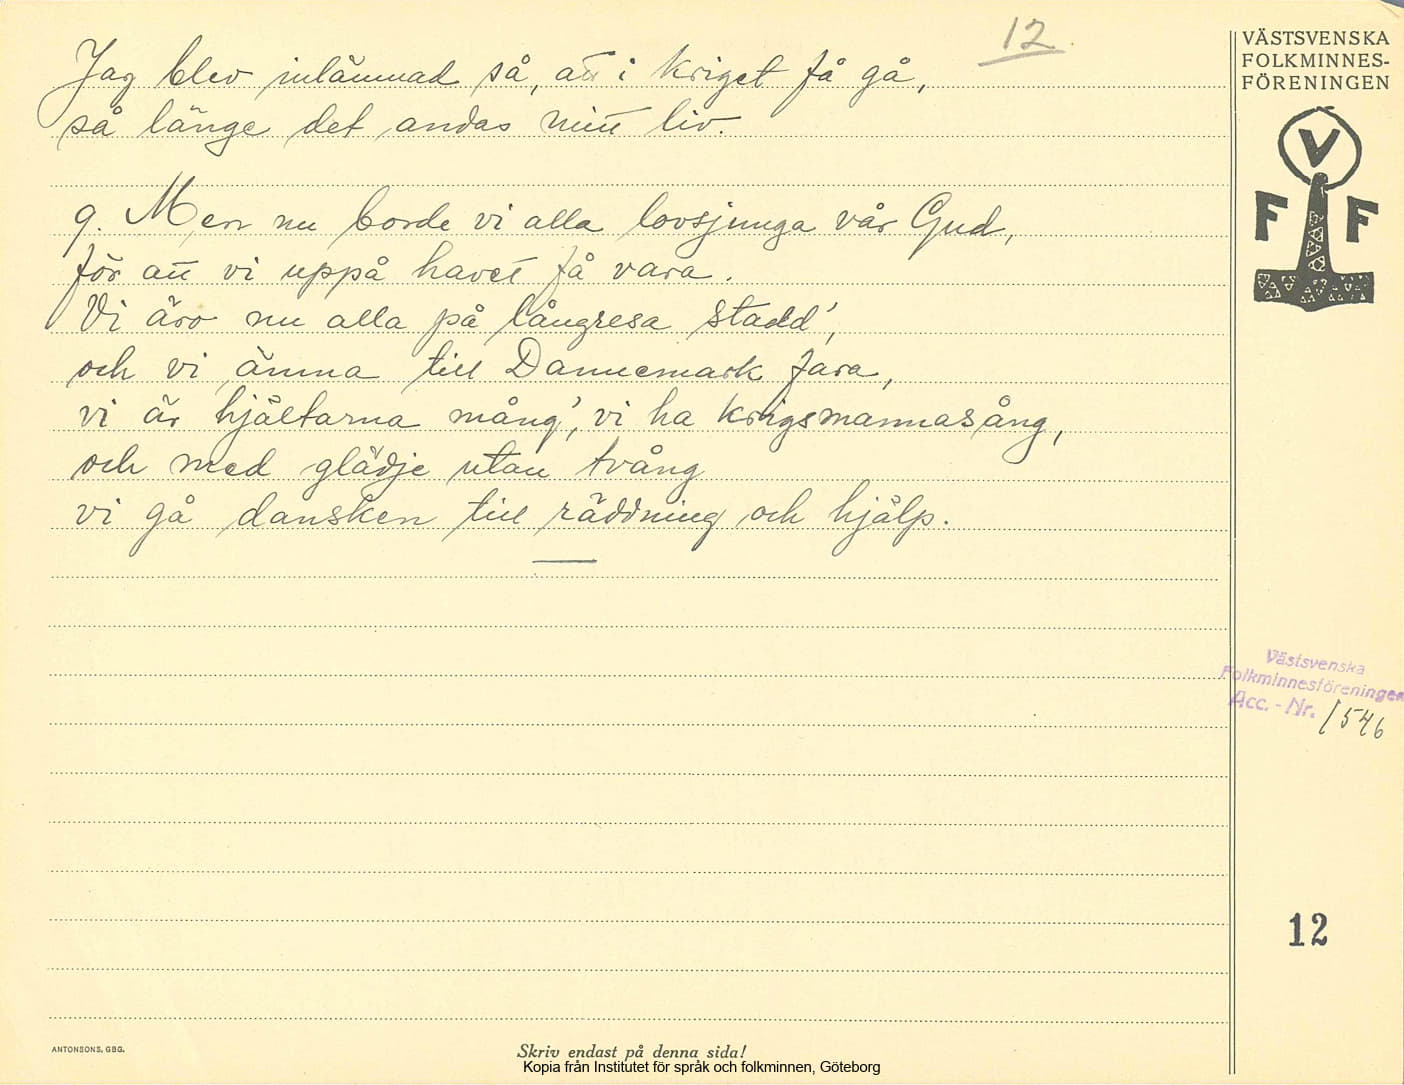 12.
Jag blev inlämnad så, att i kriget få gå,
så länge det andas mitt liv.
9. Men nu borde vi alla lovsjunga vår Gud,
för att vi uppå havet få vara.
Vi äro nu alla på långresa stadd',
och vi ämna till Dannemark fara,
vi är hjältarna mång', vi ha krigsmannasång,
och med glädje utan tvång
vi gå dansken till räddning och hjälp.
VÄSTSVENSKA
FOLKMINNES-
FÖRENINGEN
V
F F
Västsvenska
Folkminnesföreningen
Acc. - Nr. 1546
12
ANTONSONS, GBG.
Skriv endast på denna sida!
Kopia från Institutet för språk och folkminnen, Göteborg